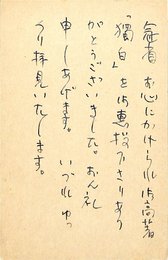 冠省 お心にかけられ御高著
「獨白」を御恵投下さりあり
がとうございました。おん礼
申しあげます。 いづれゆっ
くり拝見いたします。